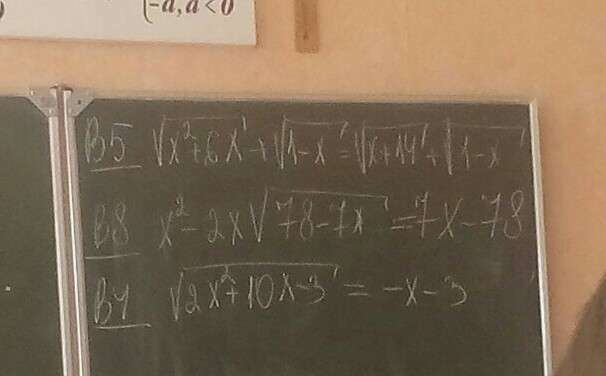 {-a, a < 0
B5 √(x²+6x) + √(1-x) = √(x+14) + √(1-x)
B8 x² - 2x√(78-7x) = 7x - 78
B4 √(2x²+10x-3) = -x-3